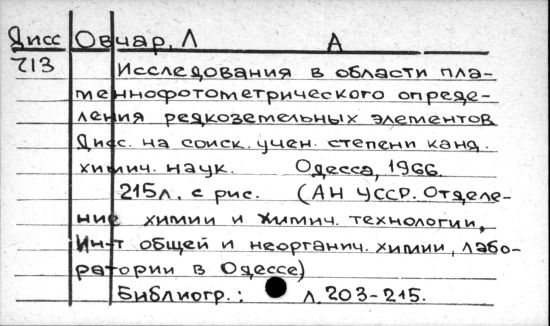 Дисс Овчар, Л А
213 Исследования в области пла-
теннофотометрического опреде-
ления редкоземельных элементов
Дисс. на соиск. учен. степени канд.
химич. наук. Одесса, 1966.
215л. с рис. (АН УССР. Отделе-
ние химии и химич. технологии,
Ин-т общей и неорганич. химии, лабо-
ратории в Одессе)
Библиогр.: л. 203-215.